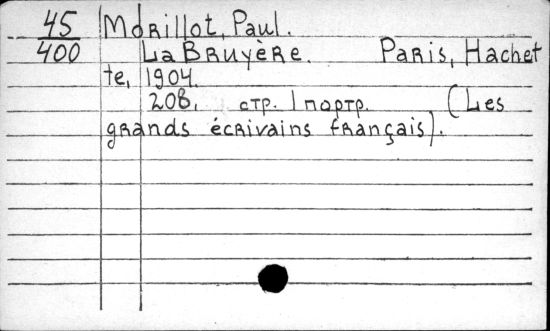 45 Morillot, Paul.
400 La Bruyère. Paris, Hachet
te, 1904.
208. стр. 1 портр. (Les
grands écrivains français).